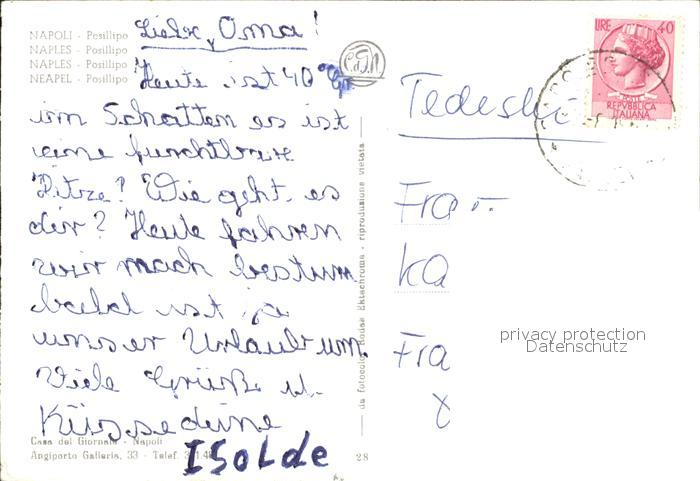 NAPOLI - Posillipo
NAPLES - Posillipo
NAPLES - Posillipo
NEAPEL - Posillipo
Liebe, Oma!
Heute ist 40° Gr.
im Schatten es ist
eine furchtbare
Hitze! Wie geht es
dir? Heute fahren
wir nach
bald ist ja
unser Urlaub um.
Viele Grüße u.
Küsse deine
ISOLde
Casa del Giornale - Napoli
Angiporto Galleria, 33 - Telef.
28
da fotocolor Kodak Ektachrome - riproduzione vietata
LIRE 40
POSTE
REPVBBLICA
ITALIANA
Tedeschi
Frau
Ka
Fra
privacy protection
Datenschutz